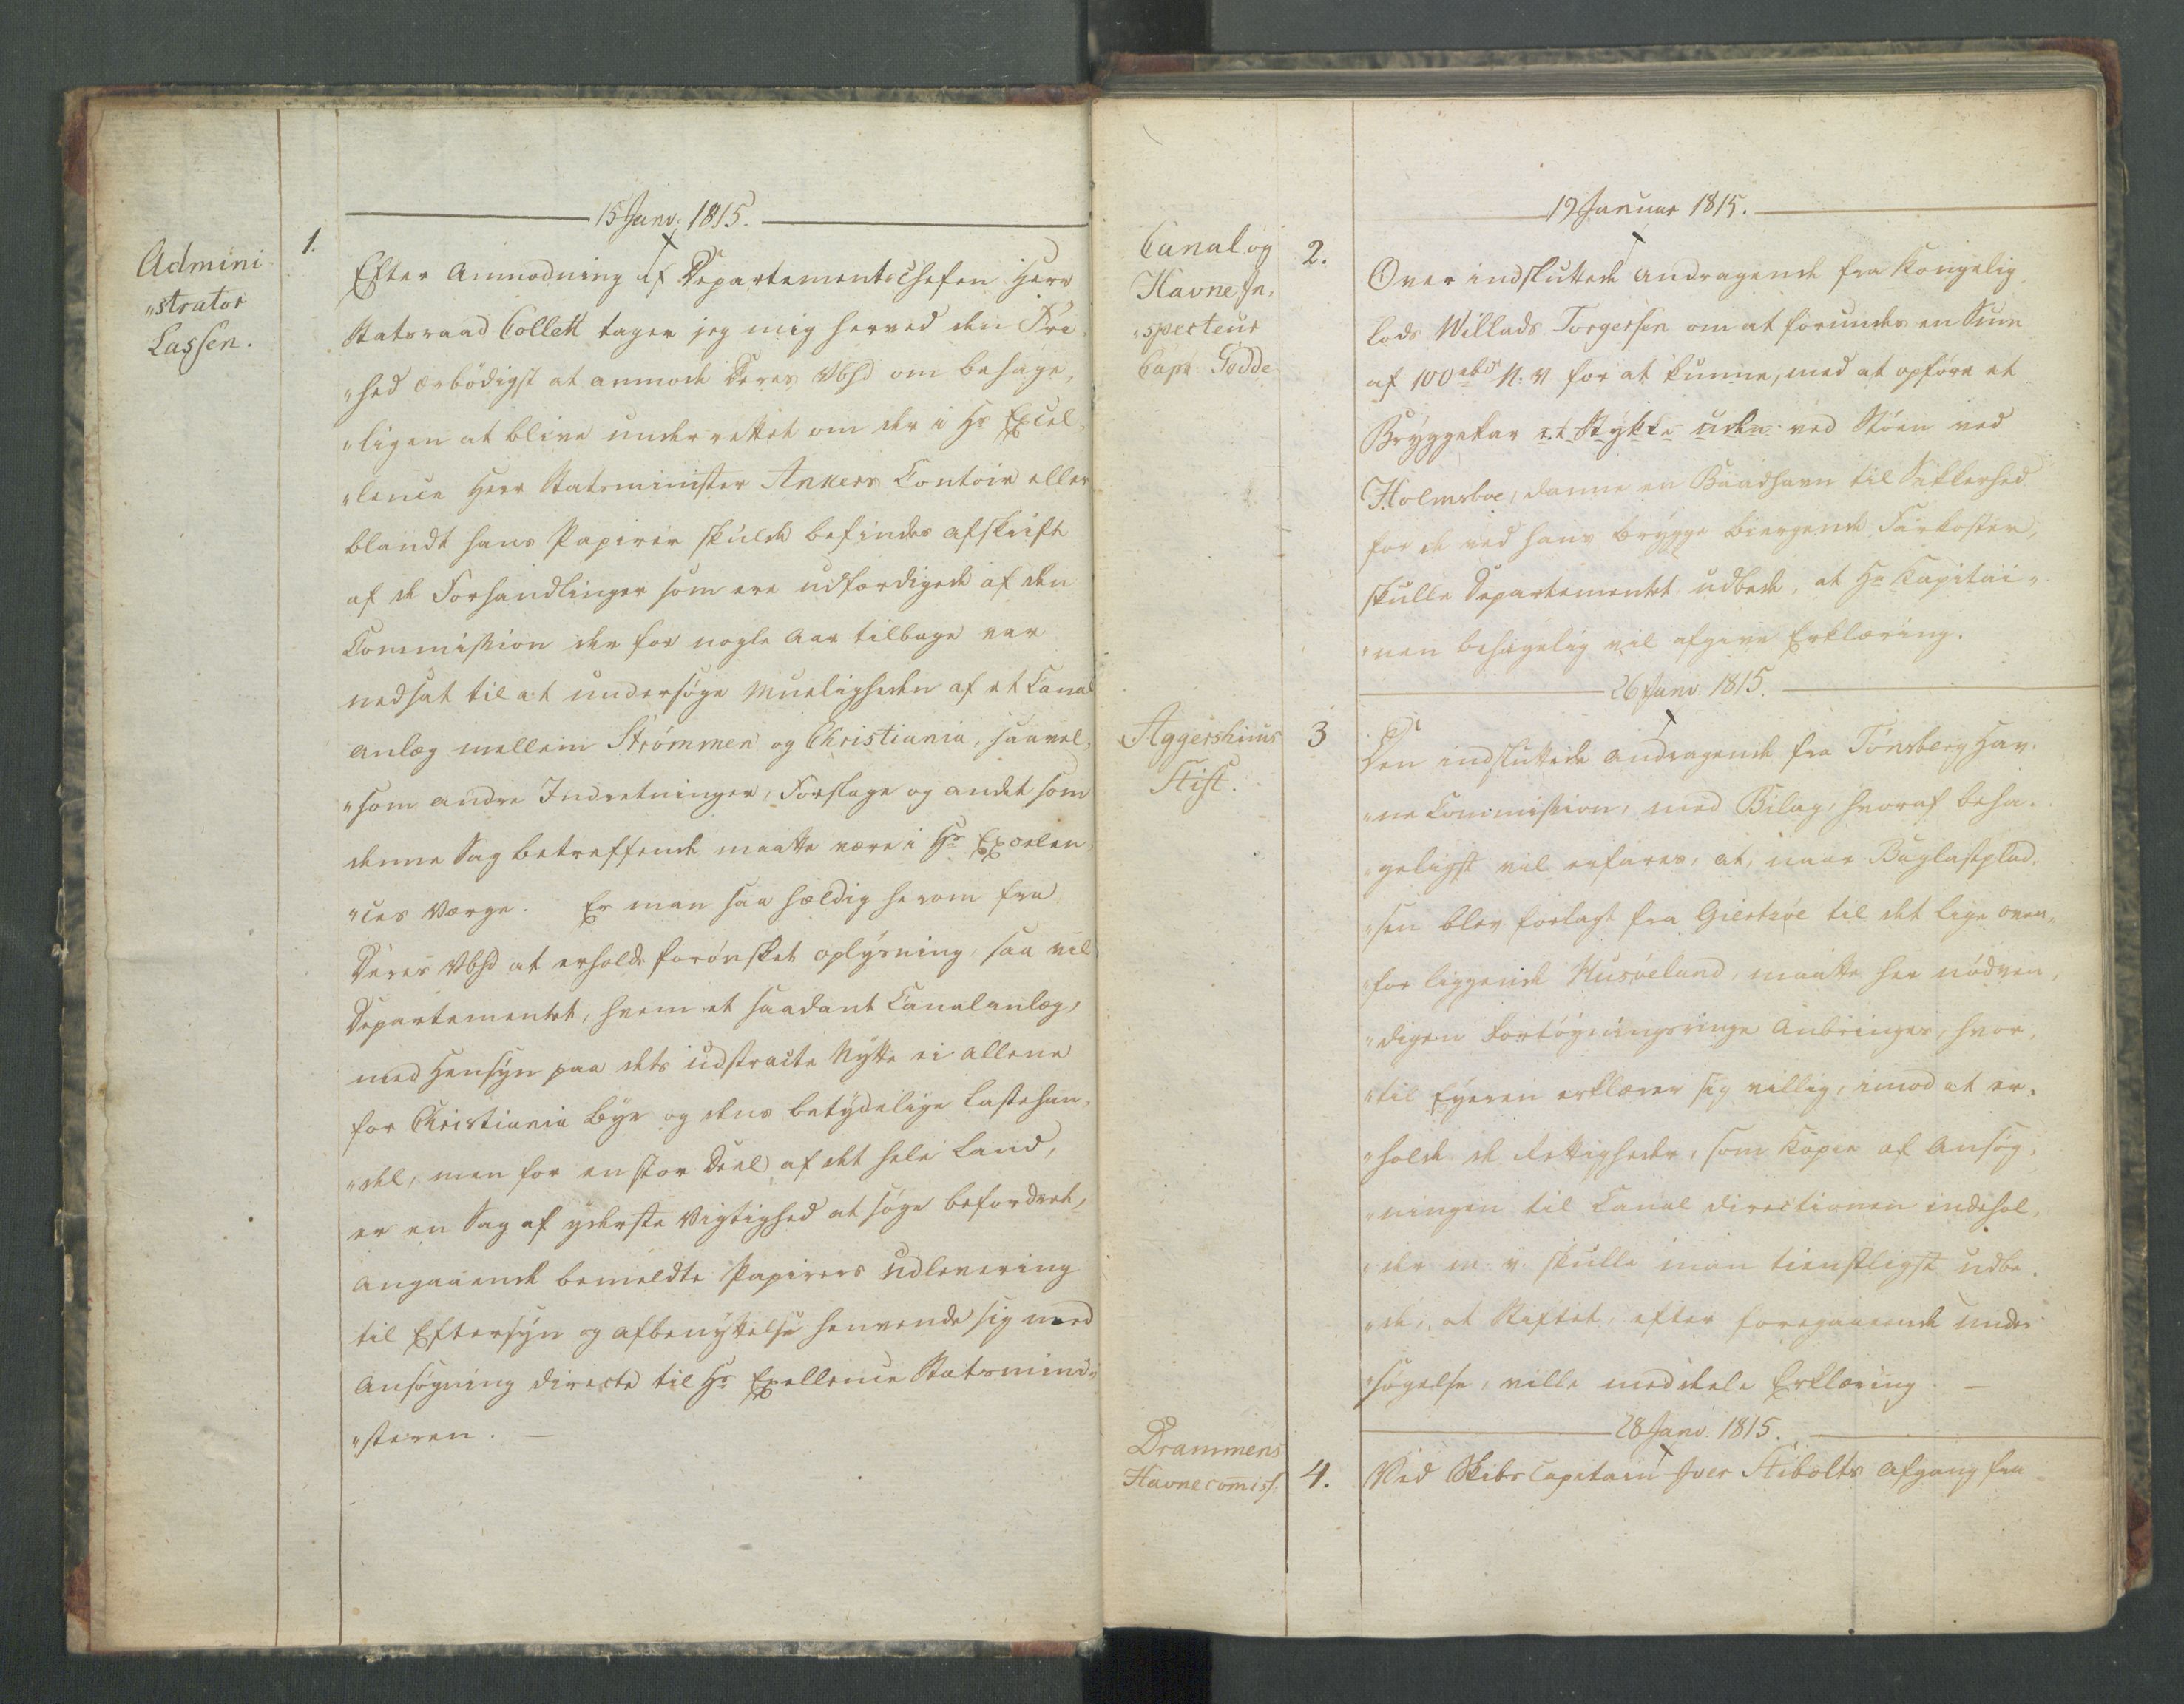 15 Janv: 1815.
1.
Admini
"strator
Lassen.
Efter Anmodning af Departementschefen Herr
Statsraad Collett tager jeg mig herved den Fri„
"hed ærbödigst at anmode Deres Vbhd om behage„
"ligen at blive underrettet om der i Hs Excel„
"lence Herr Statsminister Ankers Contoir eller
blandt hans Papirer skulde befindes afskrift
af de Forhandlinger som ere udfærdigede af den
Commission der for nogle Aar tilbage var
nedsat til at undersöge Mueligheden af et Canal
anlæg mellem Strømmen og Christiania, saavel„
"som andre Indretninger, Forslage og andet som
denne Sag betreffende maatte være i Hs Excelen„
"ces Værge. Er man saa heldig herom fra
Deres Vbhd at erholde forönsket oplysning, saa vil
Departementet, hvem et saadant Canalanlæg,
med Hensyn paa dets udstracte Nytte ei allene
for Christiania Bye og dens betydelige Lastehan„
"del, men for en stor Deel af det hele Land,
er en Sag af yderste Vigtighed at söge befordret,
angaaende bemeldte Papirers Udlevering
til Eftersyn og afbenyttelse henvende sig med
Ansögning directe til Hs Exellence Statsmini„
"steren. —
19 Januar 1815.
Canal og
Havne In„
"specteur
Capt: Gedde
2.
Over indsluttede andragende fra Kongelig
Lods Willads Torgersen om at forundes en Sum
af 100 rbd N. V. for at kunne, med at opföre et
Bryggekar et Stykke uden ved Stöen ved
Holmsboe, danne en Baadhavn til Sikkerhed
for de ved hans brygge biergende Farkoster,
skulle Departementet udbede, at Hr Kapitai„
"nen behagelig vil afgive Erklæring.
26 Janv: 1815.
Aggershuus
Stift.
3
Den indsluttede andragende fra Tönsberg Hav„
"ne Commission, med Bilag, hvoraf beha„
"geligst vil erfares, at, naar Baglastplad„
"sen blev forlagt fra Giertsöe til det lige oven„
"for liggende Husöelund, maatte her nödven„
"digen Fortöyningsringe Anbringes, hvor„
"til Eyeren erklærer sig villig, imod at er„
"holde de Rettigheder, som Kopie af Ansög„
"ningen til Canal Directionen indehol„
"der m. v. skulle man tienstligst udbe„
"de, at Stiftet, efter foregaaende under
"sögelse, ville meddele Erklæring. —
28 Janv: 1815.
Drammens
Havnecomiss:
4.
Ved Skibscapitain Iver Stibolts afgang fra